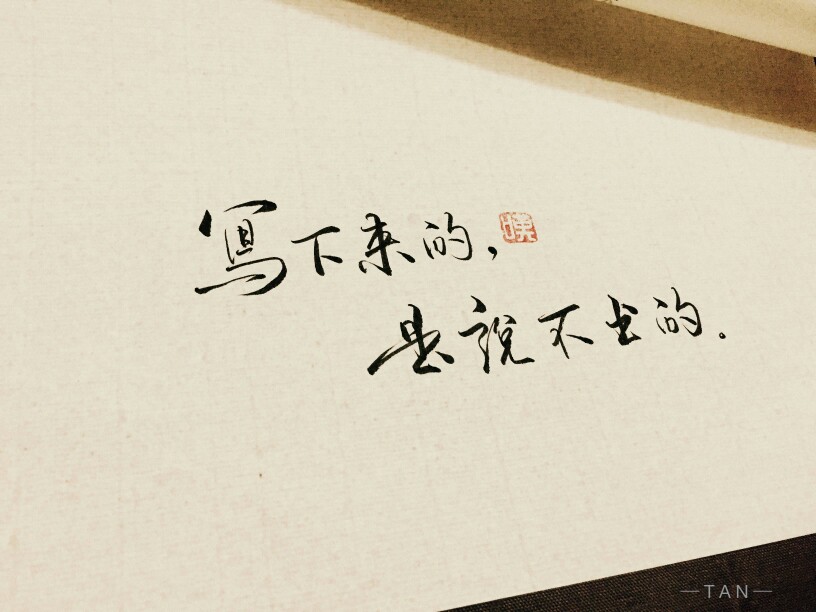 寫下来的，
是說不出的。
—TAN—